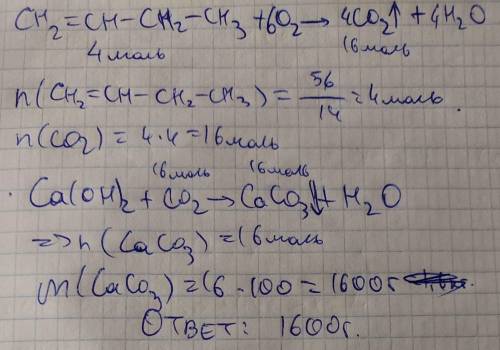 CH₂=CH-CH₂-CH₃+6O₂→4CO₂↑+4H₂O
4 моль 16 моль
n(CH₂=CH-CH₂-CH₃)=56/14=4 моль.
n(CO₂)=4·4=16 моль
16 моль 16 моль
Ca(OH)₂+CO₂→CaCO₃↓+H₂O
=>n(CaCO₃)=16 моль
m(CaCO₃)=16·100=1600г
Ответ: 1600г.